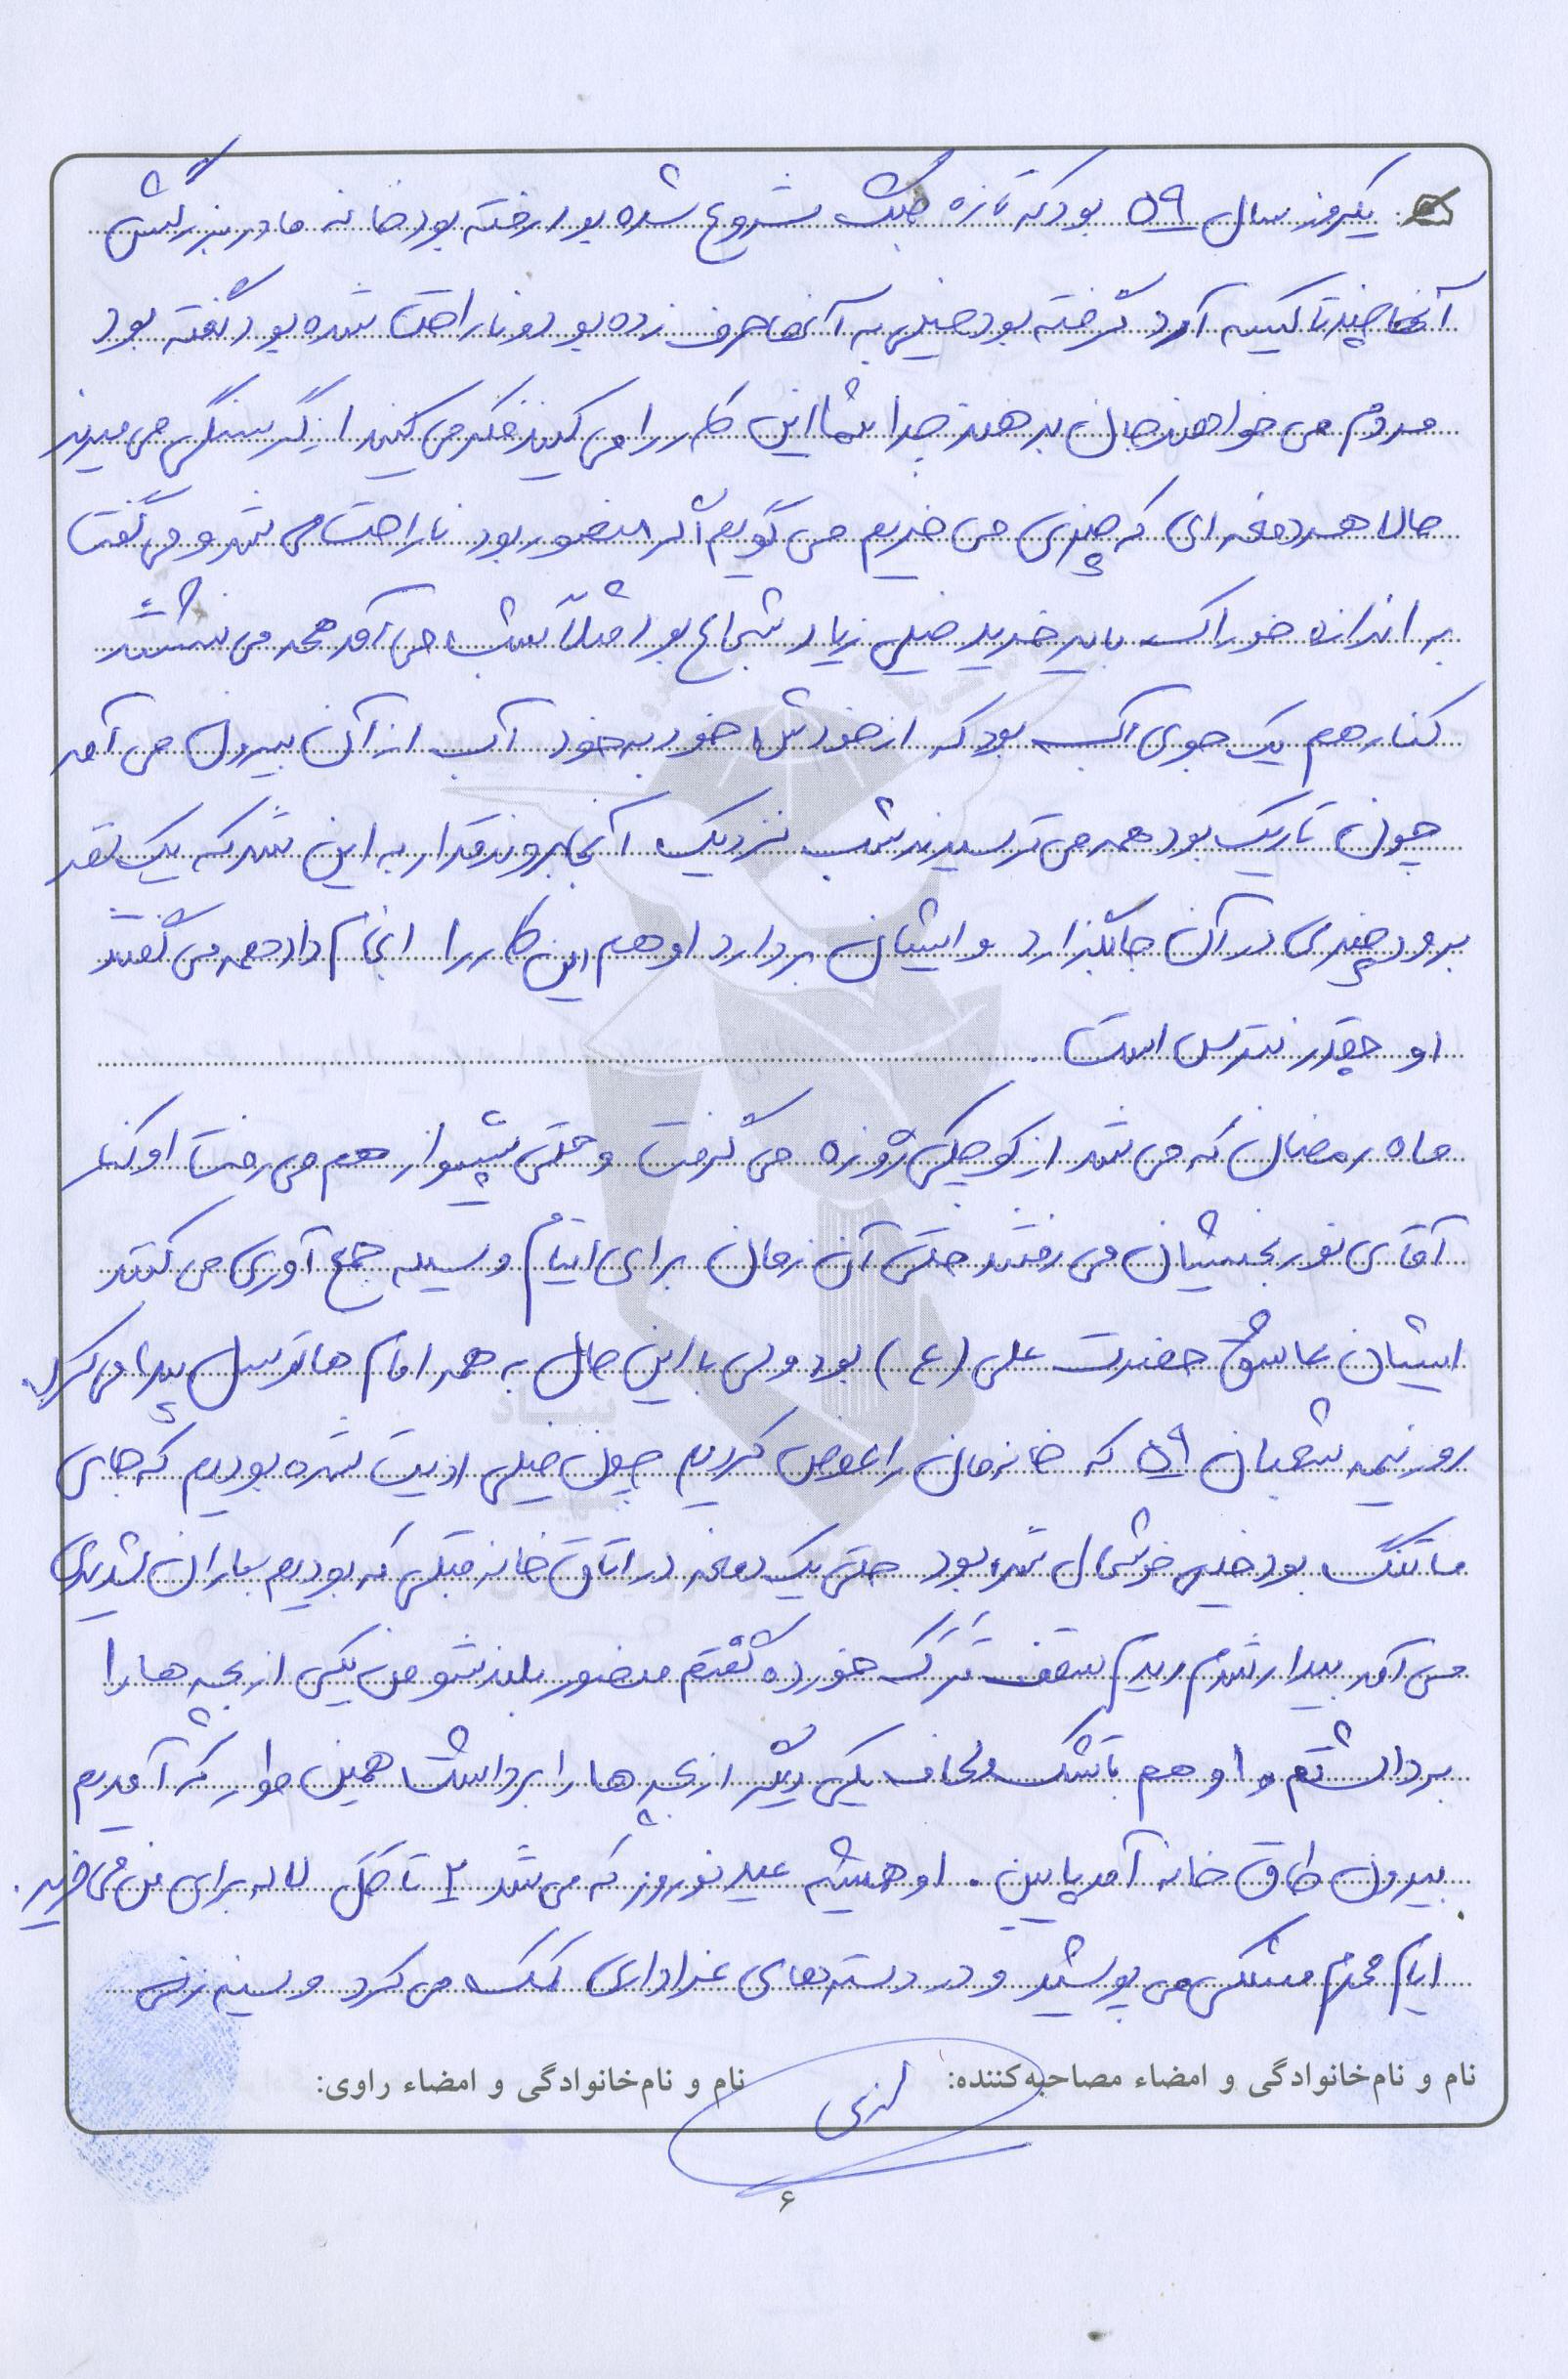 یکروز سال ۵۹ بود که تازه جنگ شروع شده بود رفته بود خانه مادربزرگش
آنها چند تا کیسه آرد گرفته بود خیلی به آنها حرف زده بود و ناراحت شده بود گفته بود
مردم می خواهند جان بدهند چرا شما این کار را می کنید فکر می کنید از گرسنگی می میرید
حالا هر دفعه ای که چیزی می خریم می گویم اگر منصور بود ناراحت می شد و می گفت
به اندازه خوراک باید خرید خیلی زیاد شجاع بود مثلاً شب می آمد همه می نشستند
کنار هم یک جوی آب بود که از خودش خود به خود آب از آن بیرون می آمد
چون تاریک بود همه می ترسیدند شب نزدیک آنجا بروند قرار به این شد که یک نفر
برود چیزی در آن جا بگذارد و ایشان بردارد او هم این کار را انجام داد همه می گفتند
او چقدر نترس است .
ماه رمضان که می شد از کوچیکی روزه می گرفت و حتی پیشواز هم می رفت او کنار
آقای نوربخشیان می رفتند حتی آن زمان برای ایتام وسیله جمع آوری می کنند
ایشان عاشق حضرت علی (ع) بود ولی با این حال به همه امام ها توسل پیدا می کرد.
روز نیمه شعبان ۵۹ که خانه مان را عوض کردیم چون خیلی اذیت شده بودیم که جای
ما تنگ بود خیلی خوشحال شده بود حتی یک دفعه در اتاق خانه قبلی که بودیم باران شدیدی
می آمد بیدار شدم دیدم سقف تَرَک خورده گفتم منصور بلند شو من یکی از بچه ها را
برداشتم و او هم با تشک و لحاف یکی دیگر از بچه ها را برداشت همین طور که آمدیم
بیرون طاق خانه آمد پایین . او همیشه عید نوروز که می شد ۲ تا گل لاله برای من می خرید .
ایام محرم مشکی می پوشید و در دسته های عزاداری کمک می کرد و سینه زنی
نام و نام‌خانوادگی و امضاء مصاحبه‌کننده:
نام و نام‌خانوادگی و امضاء راوی:
۶